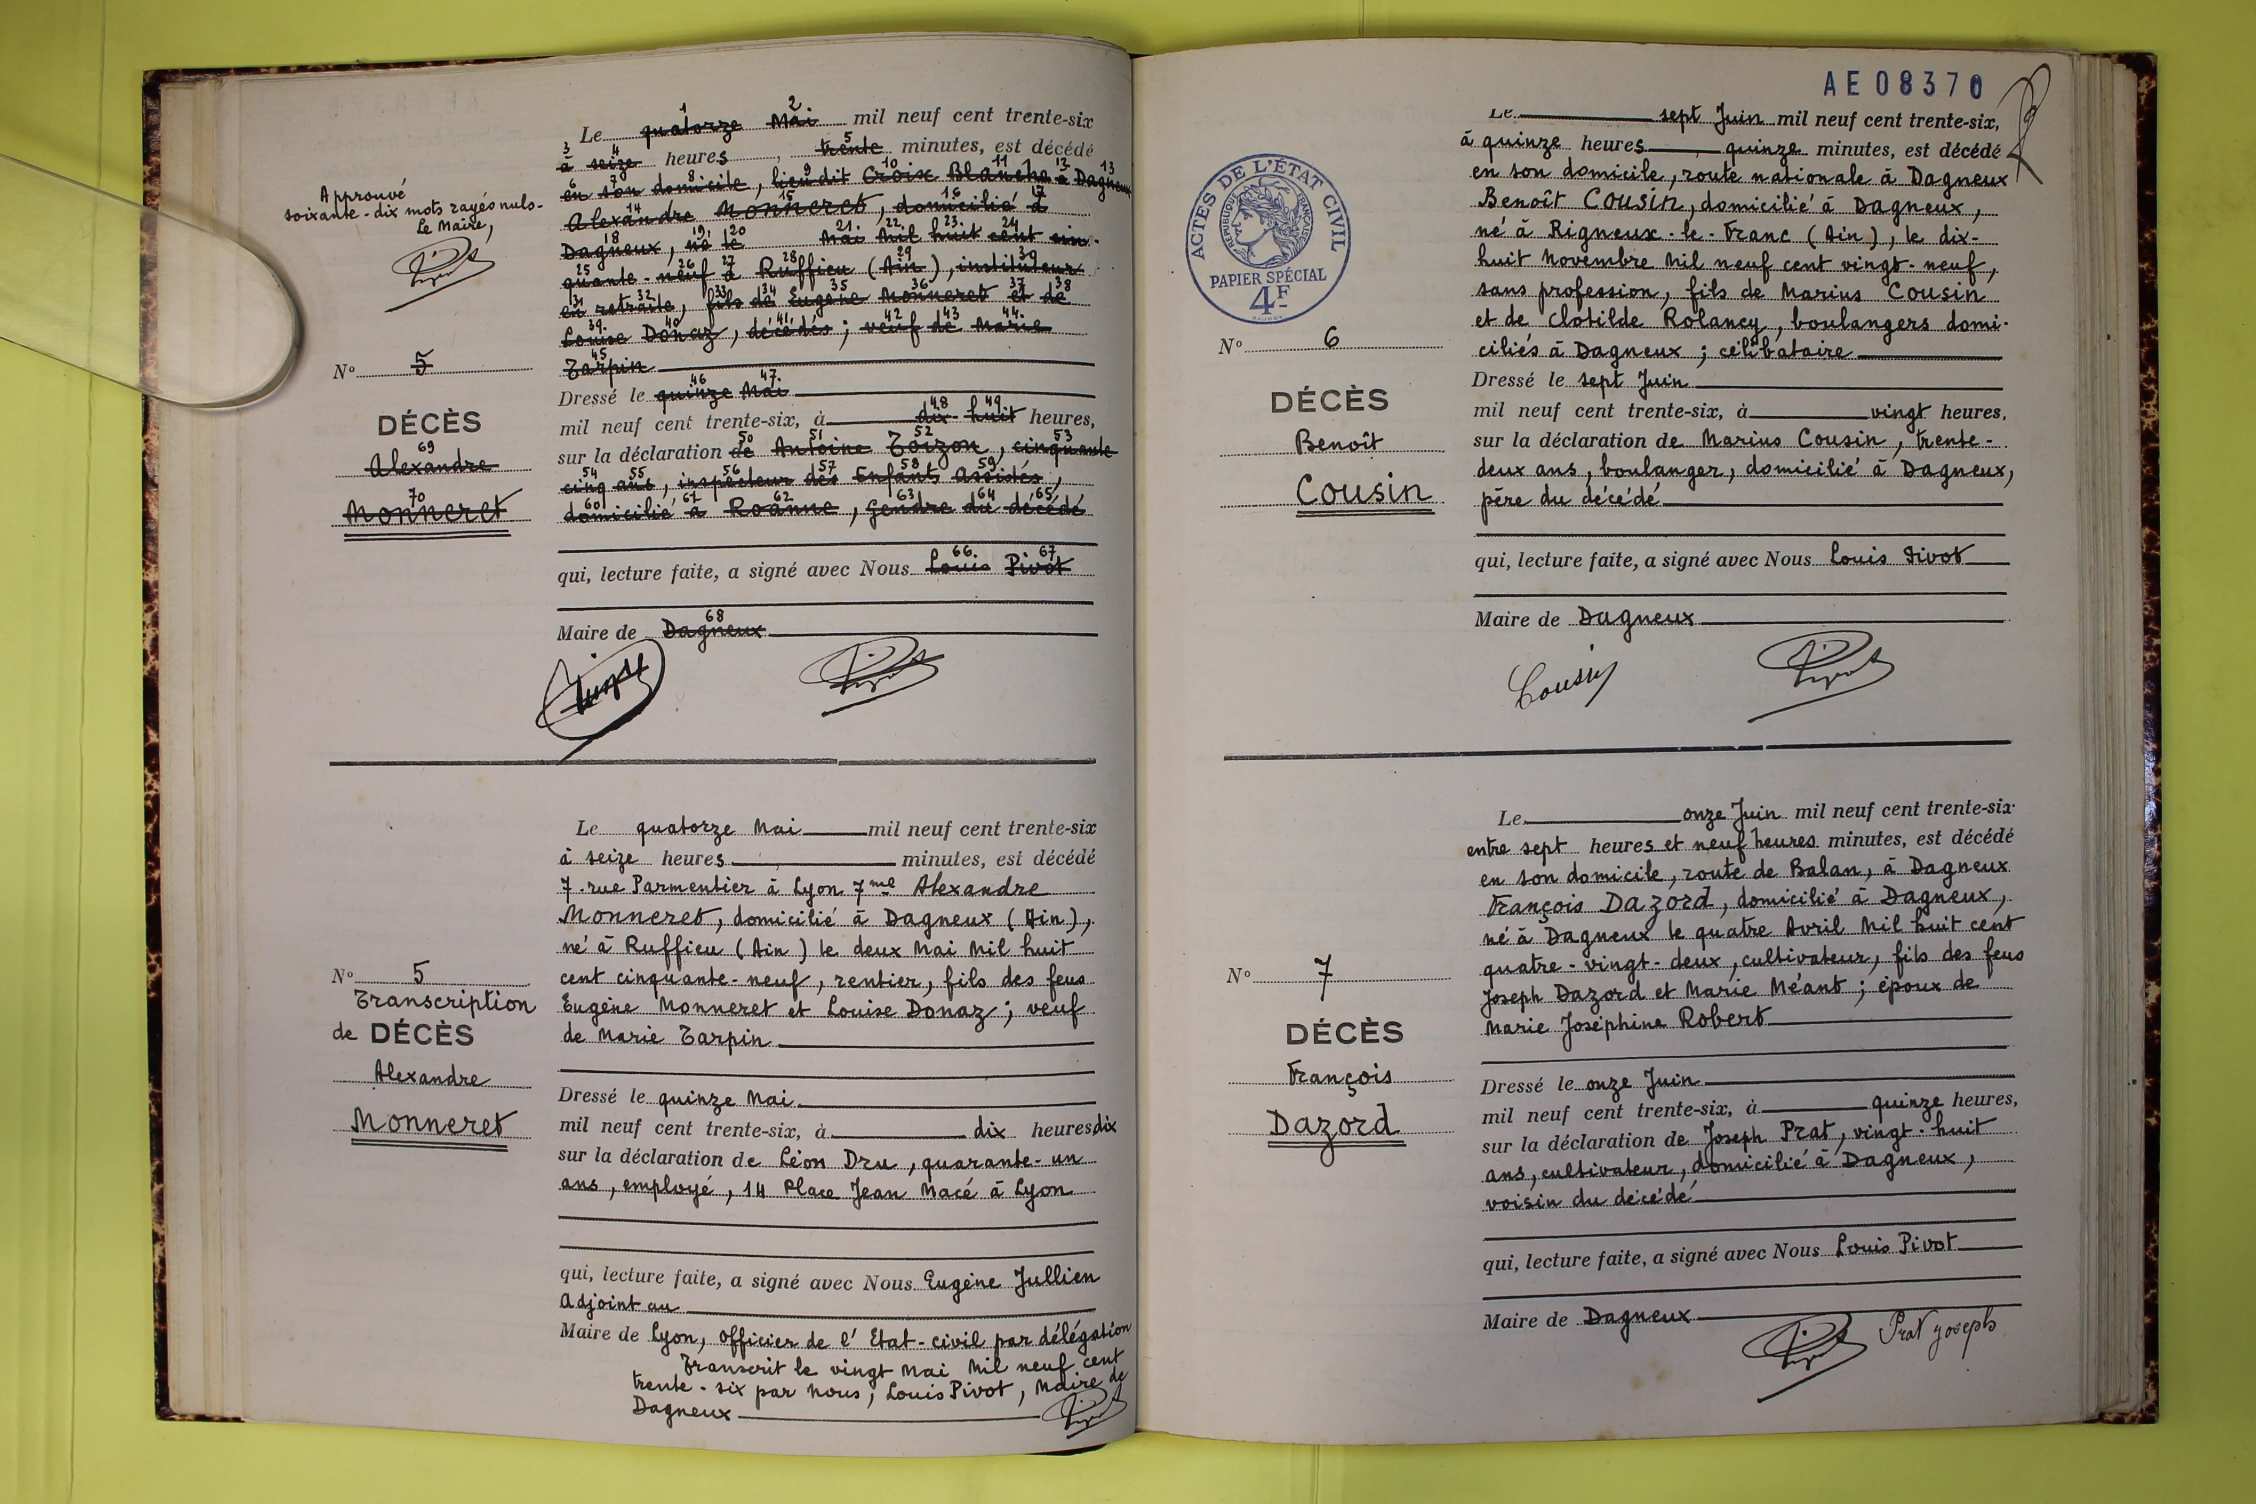 Approuvé
soixante-dix mots rayés nuls.
Le Maire,
Nº 5
DÉCÈS
69
Alexandre
70
Monneret
1 2
Le quatorze Mai mil neuf cent trente-six
3 4 5
à seize heures, trente minutes, est décédé
6 7 8 9 10 11 12 13
en son domicile, lieu dit Croix Blanche à Dagneux
14 15 16 17
Alexandre Monneret, domicilié à
18 19 20 21 22 23 24
Dagneux, né le Mai mil huit cent cin-
25 26 27 28 29 30
quante-neuf à Ruffieu (Ain), instituteur
31 32 33 34 35 36 37 38
en retraite, fils de Eugène Monneret et de
39 40 41 42 43 44
Louise Donaz, décédés; veuf de Marie
45
Tarpin
46 47
Dressé le quinze Mai
48 49
mil neuf cent trente-six, à dix-huit heures,
50 51 52 53
sur la déclaration de Antoine Toizon, cinquante
54 55 56 57 58 59
cinq ans, inspecteur des Enfants Assistés,
60 61 62 63 64 65
domicilié à Roanne, gendre du décédé
66 67
qui, lecture faite, a signé avec Nous Louis Pivot
68
Maire de Dagneux
Nº 5
Transcription
de DÉCÈS
Alexandre
Monneret
Le quatorze Mai mil neuf cent trente-six
à seize heures, minutes, est décédé
7 rue Parmentier à Lyon 7me Alexandre
Monneret, domicilié à Dagneux (Ain),
né à Ruffieu (Ain) le deux Mai Mil huit
cent cinquante-neuf, rentier, fils des feus
Eugène Monneret et Louise Donaz; veuf
de Marie Tarpin
Dressé le quinze Mai
mil neuf cent trente-six, à dix heures dix
sur la déclaration de Léon Dru, quarante-un
ans, employé, 14 Place Jean Macé à Lyon
qui, lecture faite, a signé avec Nous Eugène Jullien
Adjoint au
Maire de Lyon, officier de l'Etat-civil par délégation
Transcrit le vingt Mai Mil neuf cent
trente-six par Nous, Louis Pivot, Maire de
Dagneux
AE08370
ACTES DE L'ÉTAT CIVIL
RÉPUBLIQUE FRANÇAISE
PAPIER SPÉCIAL
4F
Nº 6
DÉCÈS
Benoît
Cousin
Le sept Juin mil neuf cent trente-six,
à quinze heures, quinze minutes, est décédé
en son domicile, route nationale à Dagneux
Benoît Cousin, domicilié à Dagneux,
né à Rigneux-le-Franc (Ain), le dix-
huit Novembre Mil neuf cent vingt-neuf,
sans profession, fils de Marius Cousin
et de Clotilde Rolancy, boulangers domi-
ciliés à Dagneux; célibataire
Dressé le sept Juin
mil neuf cent trente-six, à vingt heures,
sur la déclaration de Marius Cousin, trente-
deux ans, boulanger, domicilié à Dagneux,
père du décédé
qui, lecture faite, a signé avec Nous Louis Pivot
Maire de Dagneux
Cousin
Nº 7
DÉCÈS
François
Dazord
Le onze Juin mil neuf cent trente-six
entre sept heures et neuf heures minutes, est décédé
en son domicile, route de Balan, à Dagneux
François Dazord, domicilié à Dagneux,
né à Dagneux le quatre Avril Mil huit cent
quatre-vingt-deux, cultivateur, fils des feus
Joseph Dazord et Marie Méant; époux de
Marie Joséphine Robert
Dressé le onze Juin
mil neuf cent trente-six, à quinze heures,
sur la déclaration de Joseph Prat, vingt-huit
ans, cultivateur, domicilié à Dagneux,
voisin du décédé
qui, lecture faite, a signé avec Nous Louis Pivot
Maire de Dagneux
Prat Joseph